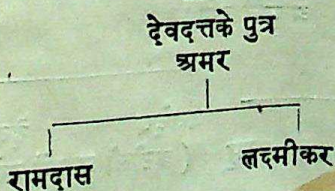 देवदत्तके पुत्र
अमर
रामदास
लक्ष्मीकर